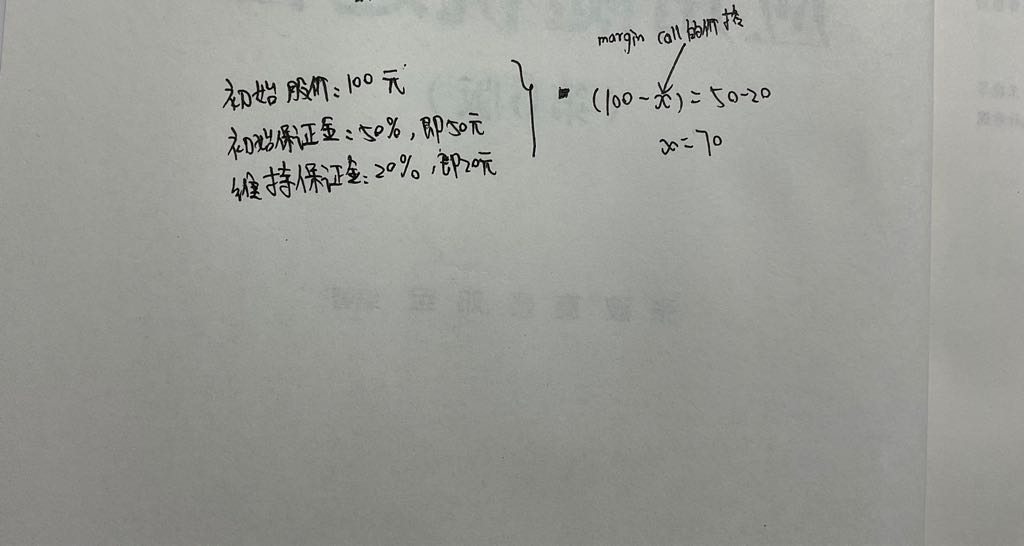 margin call的价格
初始股价：100元
(100-x)=50-20
初始保证金：50%，即50元
x=70
维持保证金：20%，即20元